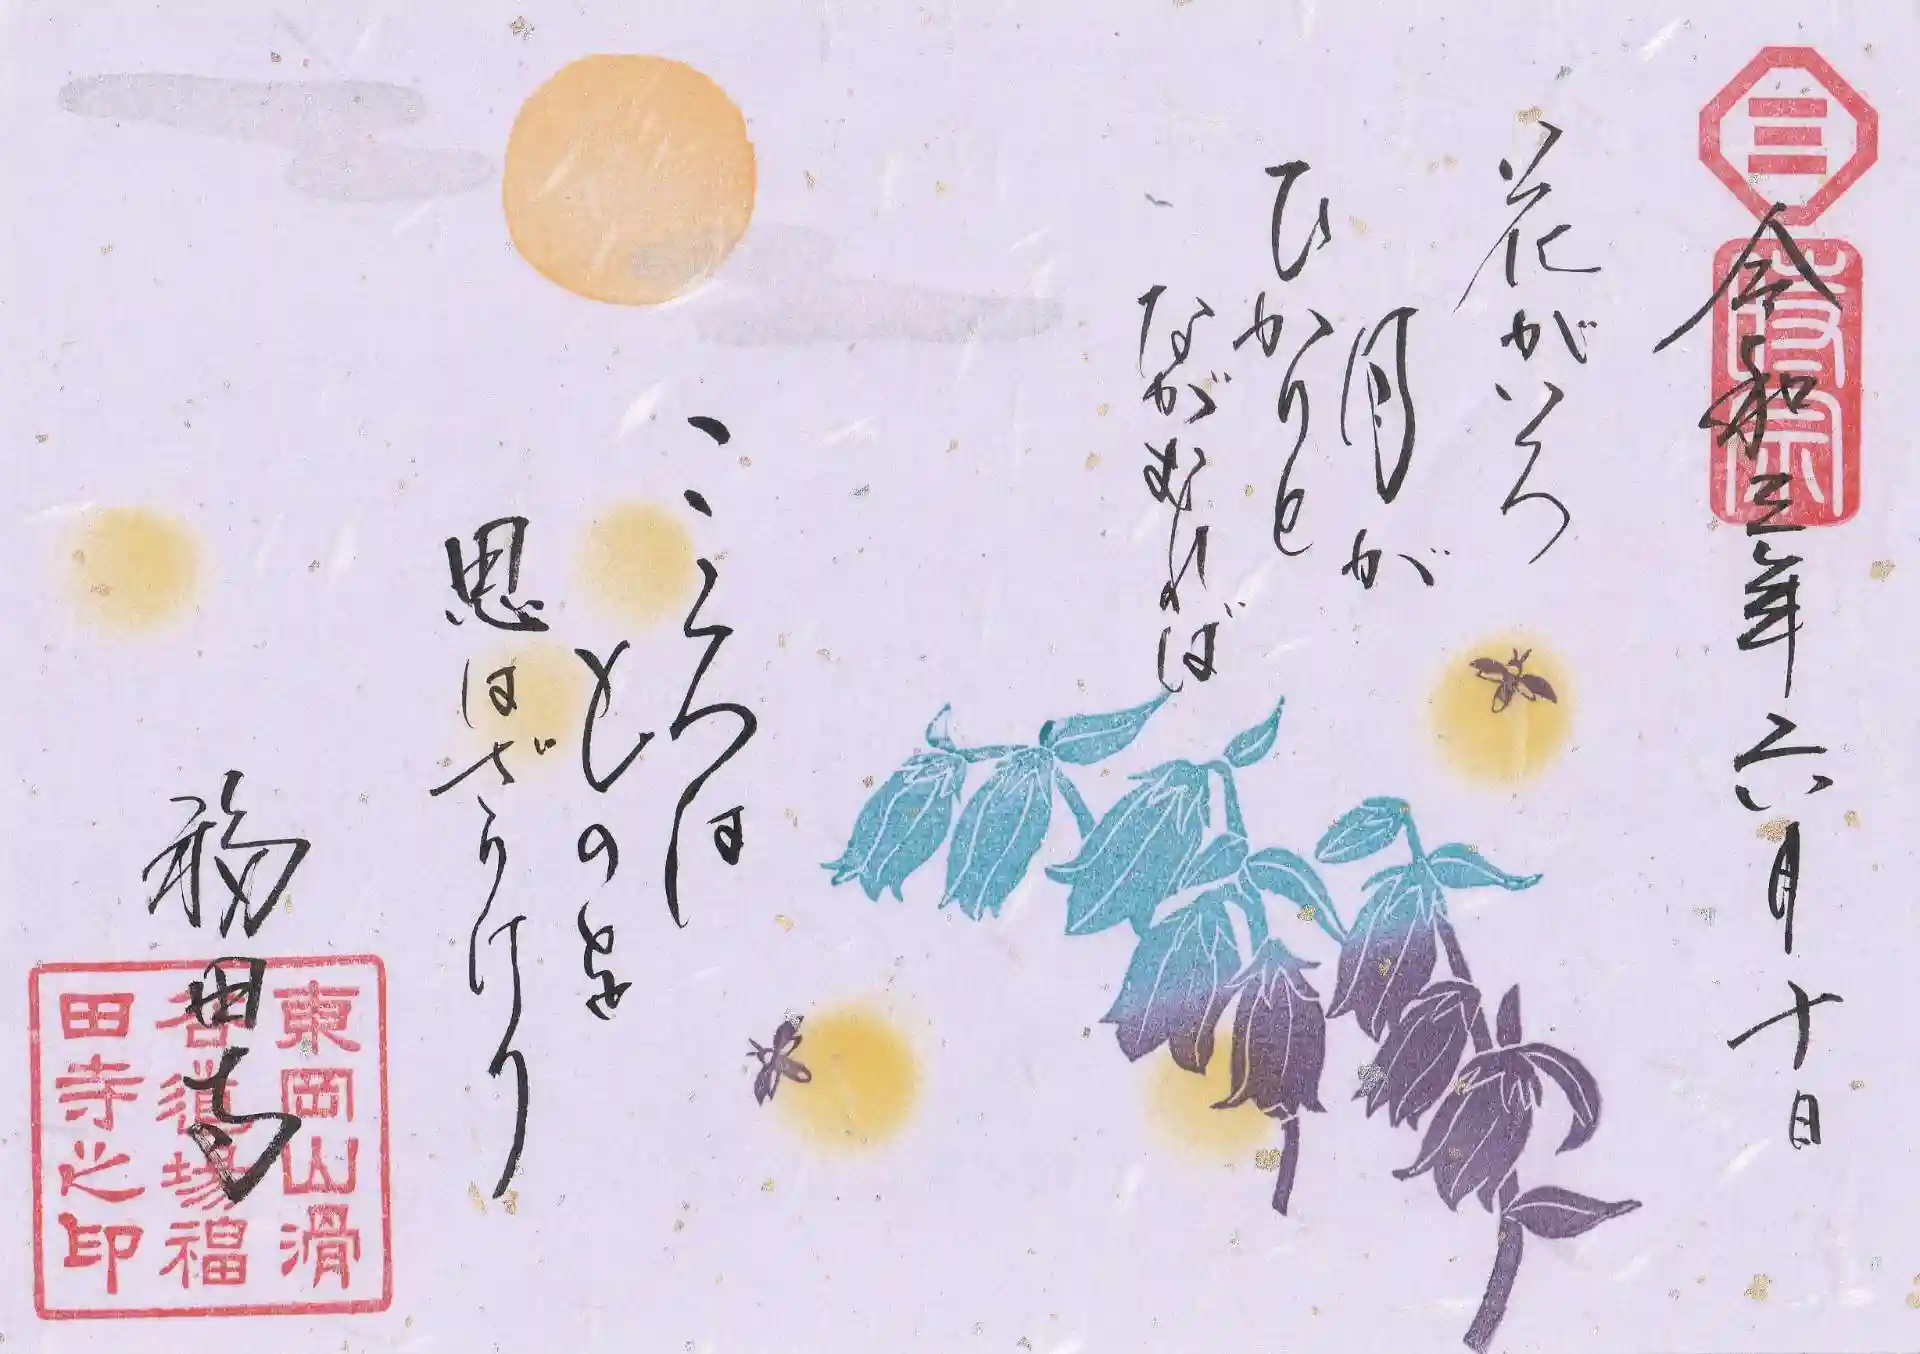 三
時宗
令和三年六月十日
花がいろ
月が
ひかりと
ながむれば
こころは
ものを
思はざりけり
福田寺
東岡山滑
谷道場福
田寺之印